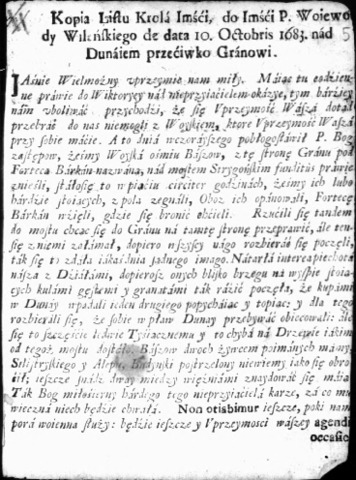 Kopia Listu Krolá Imśći, do Imśći P. Woiewo
dy Wileńskiego de data 10. Octobris 1683. nád
Dunáiem przećiwko Gránowi.
IAśnie Wielmożny vprzeymie nam miły. Máiąc tu codzien-
ne práwie do Wiktoryey nád nieprzyiaćielem okázye, tym bárźiey
nám vboliwáć przychodźi, że się Vprzeymość Wászá dotąd
przebráć do nas niemogłá z Woyskiem, ktore Vprzeymość Wászá
przy sobie máćie. A to dniá wczoráyszego pobłogosłáwił P. Bog
zastępow, żeśmy Woyská ośmiu Bászow, z tę stronę Gránu pod
Fortecą Bárkán názwáną, nád mostem Strygońskim funditùs práwie
znieśli, stáło się to w pięćiu circiter godźinách, żeśmy ich lubo
bárdzo stoiących, z polá zegnáli, Oboz ich opánowáli, Fortecę
Bárkán wźięli, gdźie się bronić chćieli. Rzućili się tandem
do mostu chcąc się do Gránu ná támtę stronę przepráwić, ále ten-
się zniemi załamał, dopiero wszyscy wágo rozbieráć się poczęli,
ták się to zdáłá iákáś dniá iednego imago. Nátárłá interea piechotá
nászá z Dźiáłámi, dopierosz onych blisko brzegu ná wyspie stoią-
cych kulámi gęstemi y granatámi ták ráźić poczęłá, że kupámi
w Dunay wpadáli ieden drugiego popycháiąc y topiąc: y dla tego
rozbieráli się, że sobie wpław Dunay przebywáć obiecowáli: ále
się to szczęśćie ledwie Tyśiącznemu y to chybá ná Drzewie iákim
od tegoż mostu dostáło. Bászow dwoch żywcem poimánych mámy,
Silistryskiego y Alepu, Budyński postrzelony niewiemy iáko się obro-
ćił; ieszcze innych dwáy między więźniámi znaydowáć się máią.
Ták Bog miłośierny hárdego tego nieprzyiaćielá karze, zá co mu
wieczna niech będźie chwałá. Non otiabimur ieszcze, poki nam
porá woienna służy: będźie ieszcze y Vprzeymośći wászey agendi
occasio